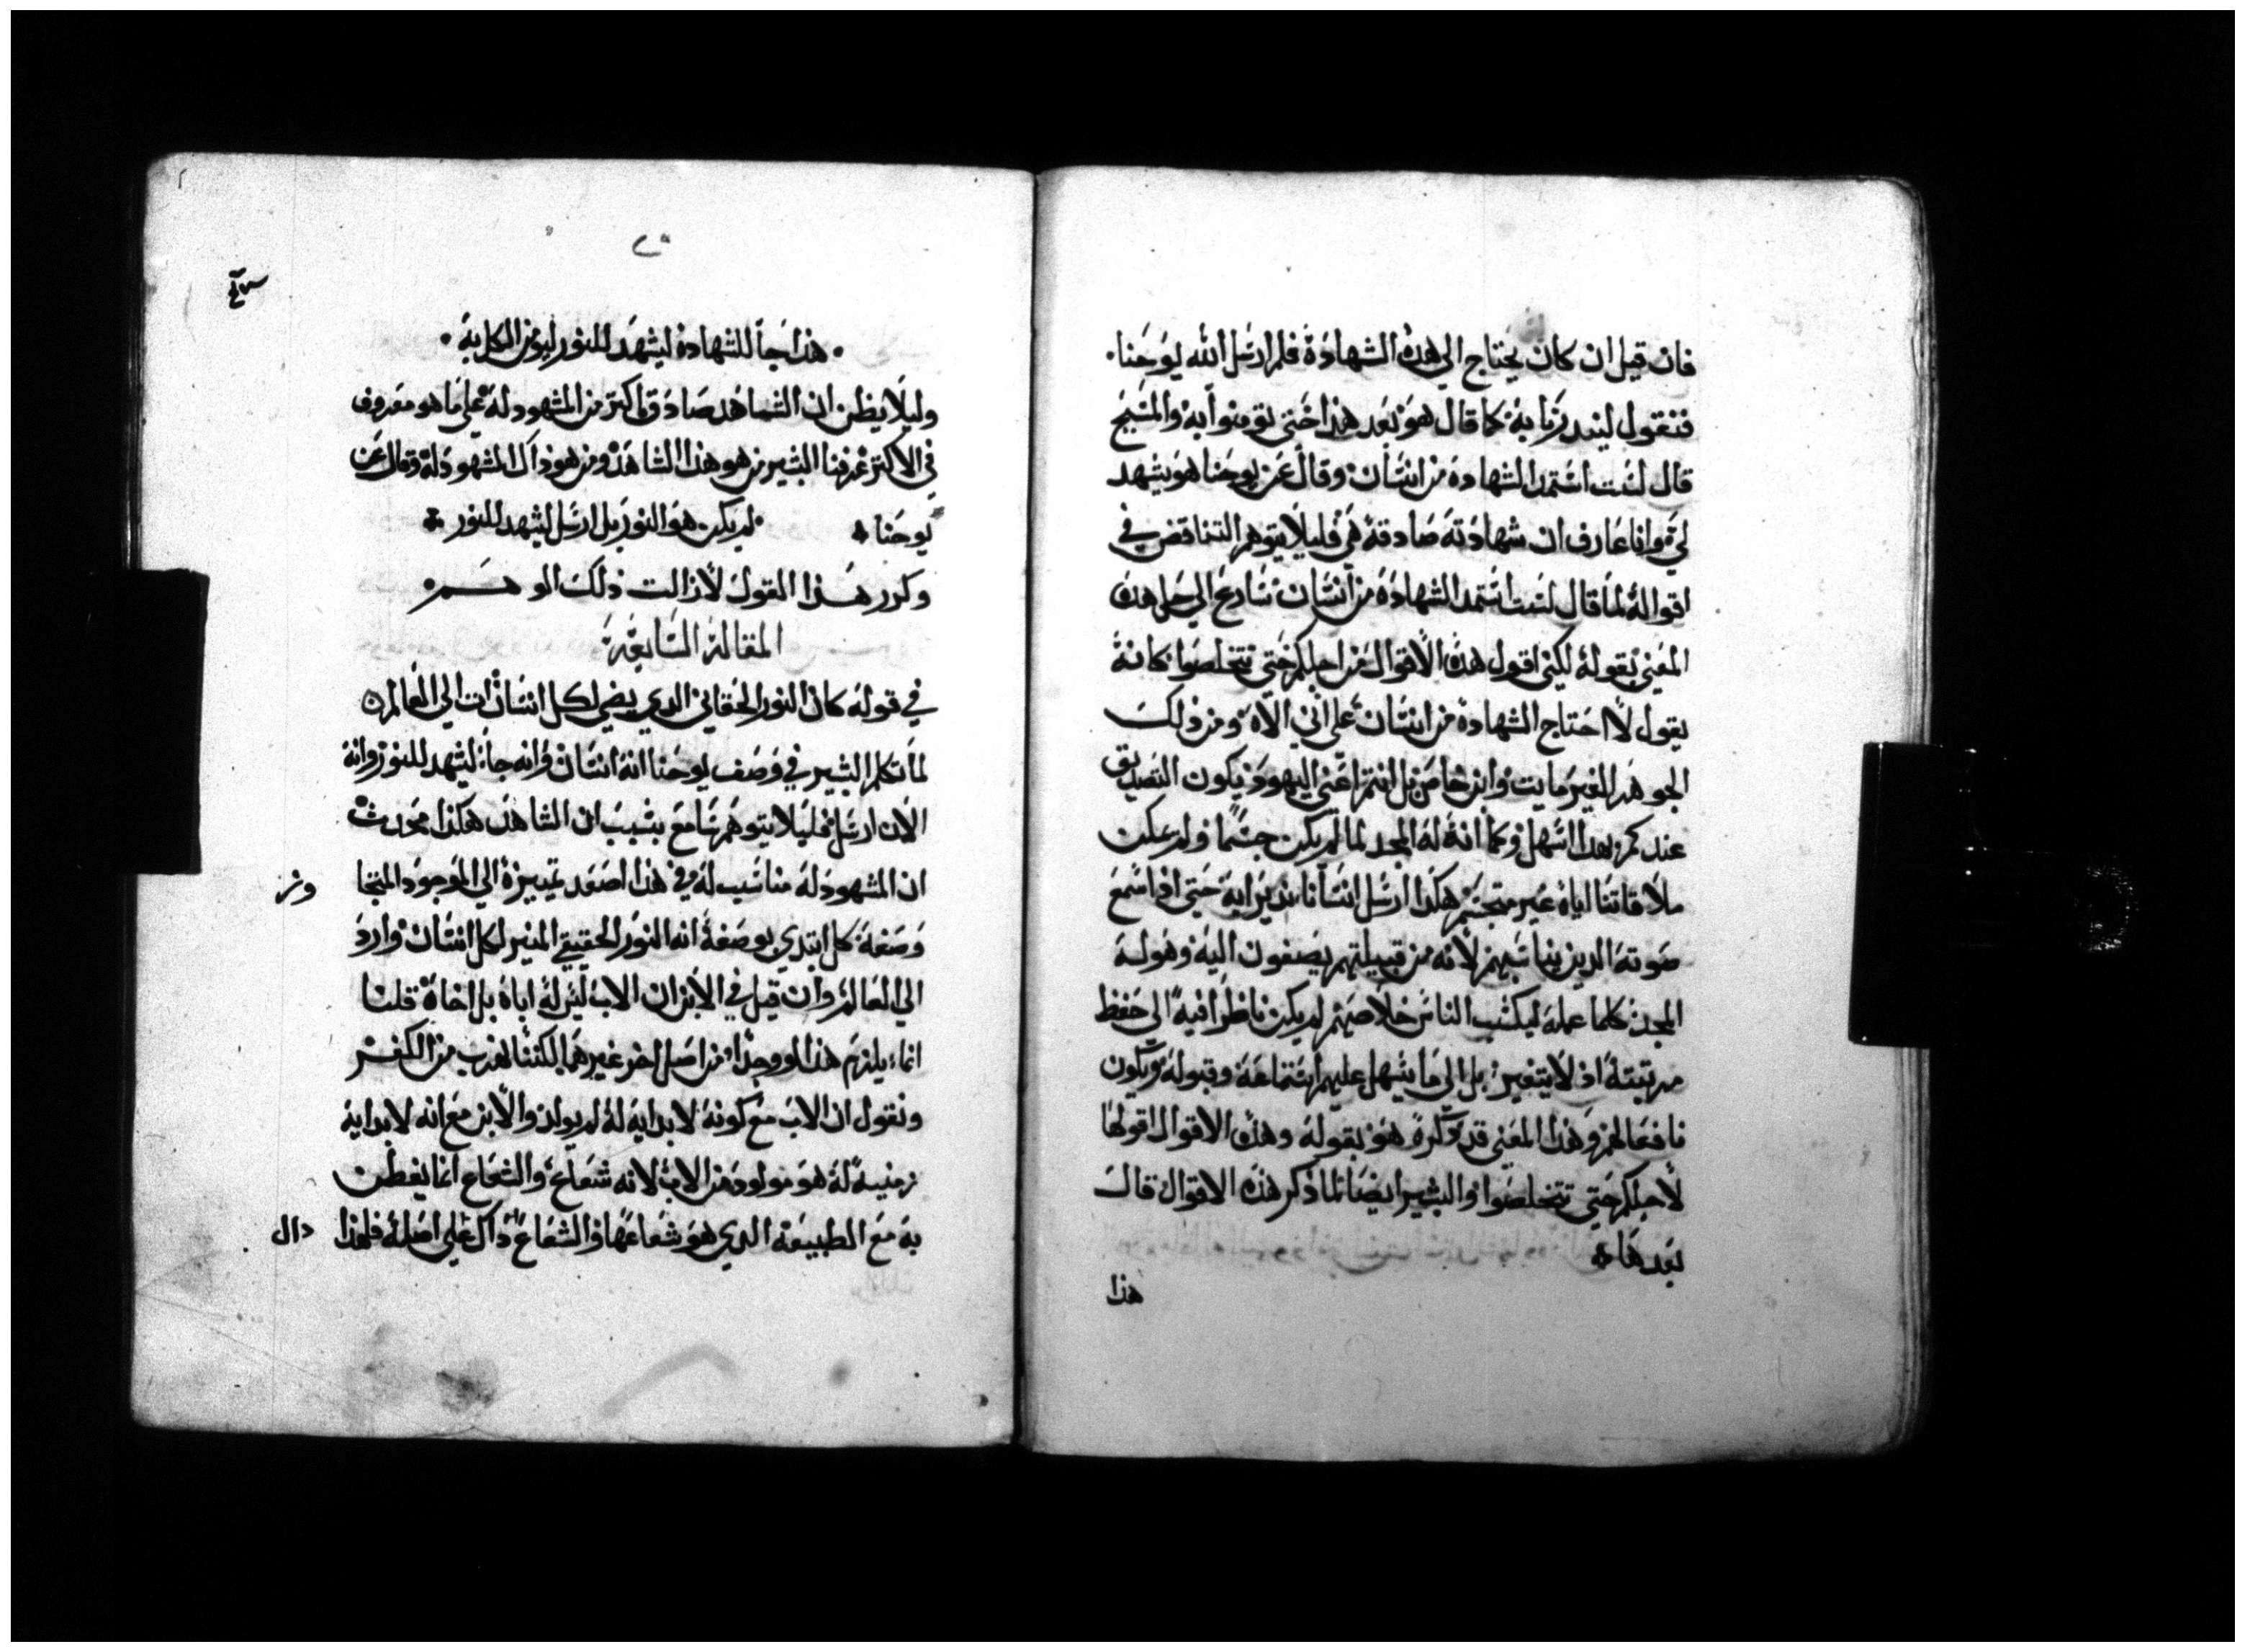 فان قيل ان كان يحتاج الي هذه الشهادة فلم ارسل الله يوحنا
فنقول لينذرنا به كما قال هو بعد هذا حتي تومنوا به والمسيح
قال لست استمد الشهادة من انسان وقال عن يوحنا هو يشهد
لي وانا عارف ان شهادته صادقة هي فليلا يتوهم التناقض في
اقواله لما قال لست استمد الشهادة من انسان سارع الي حل هذه
المعني بقوله لكني اقول هذه الاقوال من اجلكم حتي تتخلصوا كانه
يقول لا احتاج الشهادة من انسان علي اني الاه ومن ذلك
الجوهر الغير مايت وابن خاص بل انتم اعني اليهود ويكون التصديق
عندكم بهذا اسهل وكما انه له المجد لما لم يكن جسما ولم يمكن
ملاقاتنا اياه غير متجسم هكذا ارسل انسانا نذيرا به حتي اذا سمع
صوته الذين يناسبهم لانه من قبيلتهم يصغون اليه وهو له
المجد كلما عمله ليكسب الناس خلاصهم لم يكن ناظرا فيه الي حفظ
مرتبته اذ لا يتغير بل الي ما يسهل عليهم استماعه وقبوله ويكون
نافعا لهم وهذا المعني قد ذكره هو بقوله وهذه الاقوال اقولها
لاجلكم حتي تتخلصوا والبشير ايضا لما ذكر هذه الاقوال قال
بعدها
هذا
هذا جا للشهادة ليشهد للنور ليومن الكل به
وليلا يظن ان الشاهد صادق اكتر من المشهود له علي ما هو معروف
في الاكتر عرفنا البشير من هو هذا الشاهد ومن هو ذاك المشهود له وقال عن
يوحنا لم يكن هو النور بل ارسل ليشهد للنور
وكرر هذا القول لازالت ذلك الوهم
المقالة السابعة
في قوله كان النور الحقاني الدي يضي لكل انسان ات الي العالم
لما تكلم البشير في وصف يوحنا انه انسان وانه جاء ليشهد للنور وانه
الان ارسل فليلا يتوهم سامع بسبب ان الشاهد هكذا محدث
ان المشهود له مناسب له في هذا اصعد تمييزه الي الموجود المتجا
وز
وصفه كل ابتدي بوصفه انه النور الحقيقي المنير لكل انسان وارد
الي العالم وان قيل في الابن ان الاب ليس له اباه بل اخاه قلنا
انما يلزم هذا لو وجدا من اصل اخر غيرهما لكننا نهرب من الكفر
ونقول ان الاب مع كونه لا بداية له لم يولد والابن مع انه لا بداية
زمنية له هو مولود من الاب لانه شعاعه والشعاع انما يفطن
به مع الطبيعة الدي هو شعاعها والشعاع دال علي اصله فلهذا
دال